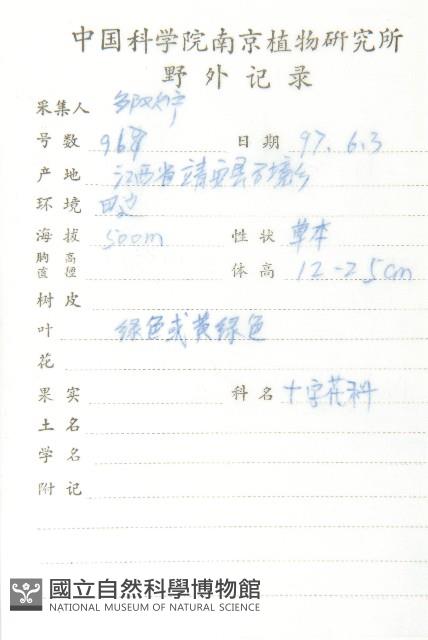 中国科学院南京植物研究所
野外记录
采集人
号数 968 日期 97.6.3
产地 江西省靖安县
环境 田边
海拔 500m 性状 草本
胸高直径 体高 12-25cm
树皮
叶 绿色或黄绿色
花
果实 科名 十字花科
土名
学名
附记
國立自然科學博物館
NATIONAL MUSEUM OF NATURAL SCIENCE